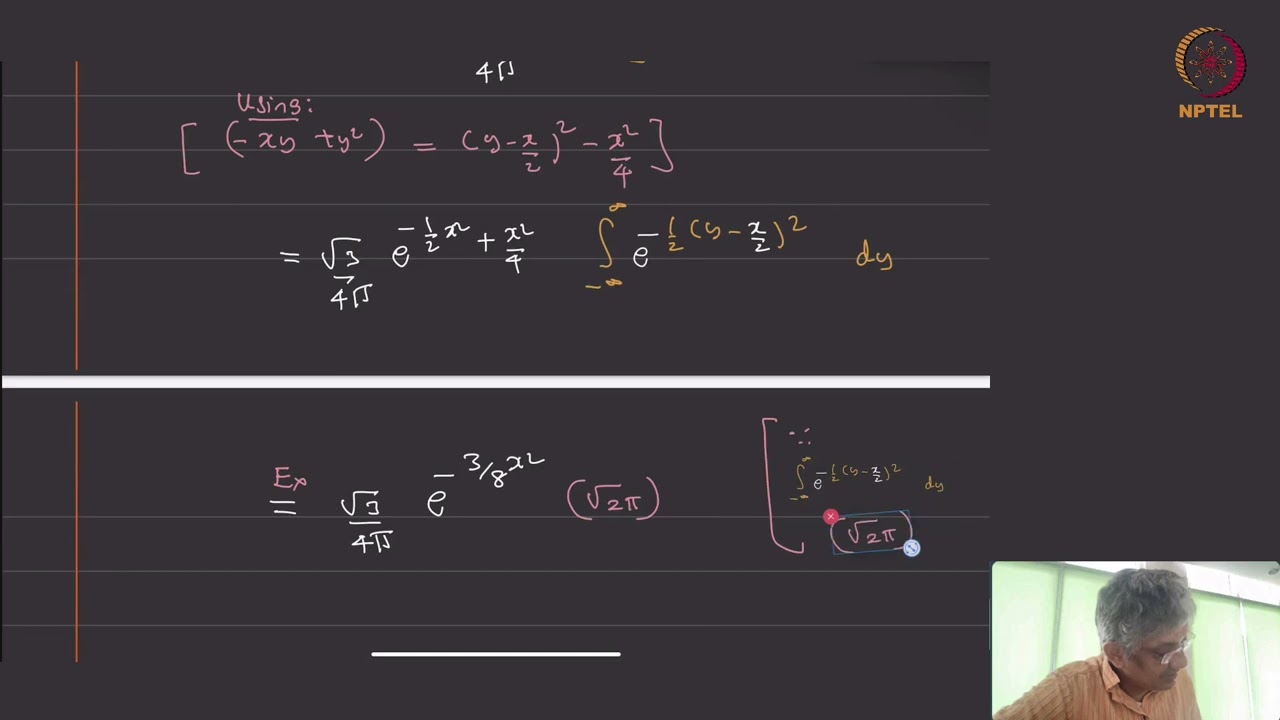 NPTEL
4π
Using:
[ (-xy + y²) = (y - x/2)² - x²/4 ]
= √3/4π e^(-1/2 x² + x²/4) ∫_{-∞}^{∞} e^(-1/2 (y - x/2)²) dy
Ex
= √3/4π e^(-3/8 x²) (√2π)
[ ∵
∫_{-∞}^{∞} e^(-1/2 (y - x/2)²) dy
(√2π)